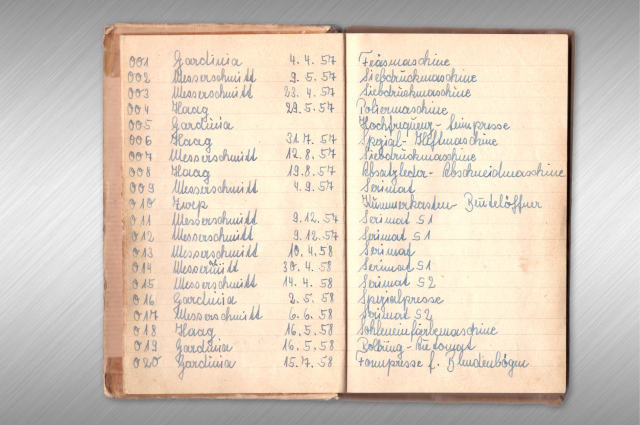 001 Gardinia 4.4.57 Fräsmaschine
002 Messerschmitt 9.5.57 Siebdruckmaschine
003 Messerschmitt 23.4.57 Siebdruckmaschine
004 Haag 29.5.57 Poliermaschine
005 Gardinia Hochfrequenz-Leimpresse
006 Haag 31.7.57 Spezial-Heftmaschine
007 Messerschmitt 12.8.57 Siebdruckmaschine
008 Haag 19.8.57 Absatzleder-Abschneidmaschine
009 Messerschmitt 4.9.57 Serimat
010 Kummerkasten-Beutelöffner
011 Messerschmitt 9.12.57 Serimat S1
012 Messerschmitt 9.12.57 Serimat S1
013 Messerschmitt 10.4.58 Serimat
014 30.4.58 Serimat S1
015 Messerschmitt 14.4.58 Serimat S2
016 Gardinia 2.5.58 Spezialpresse
017 Messerschmitt 6.6.58 Serimat S2
018 Haag 16.5.58
019 Gardinia 16.5.58
020 Gardinia 15.7.58 Formpresse f. Blendenbögen